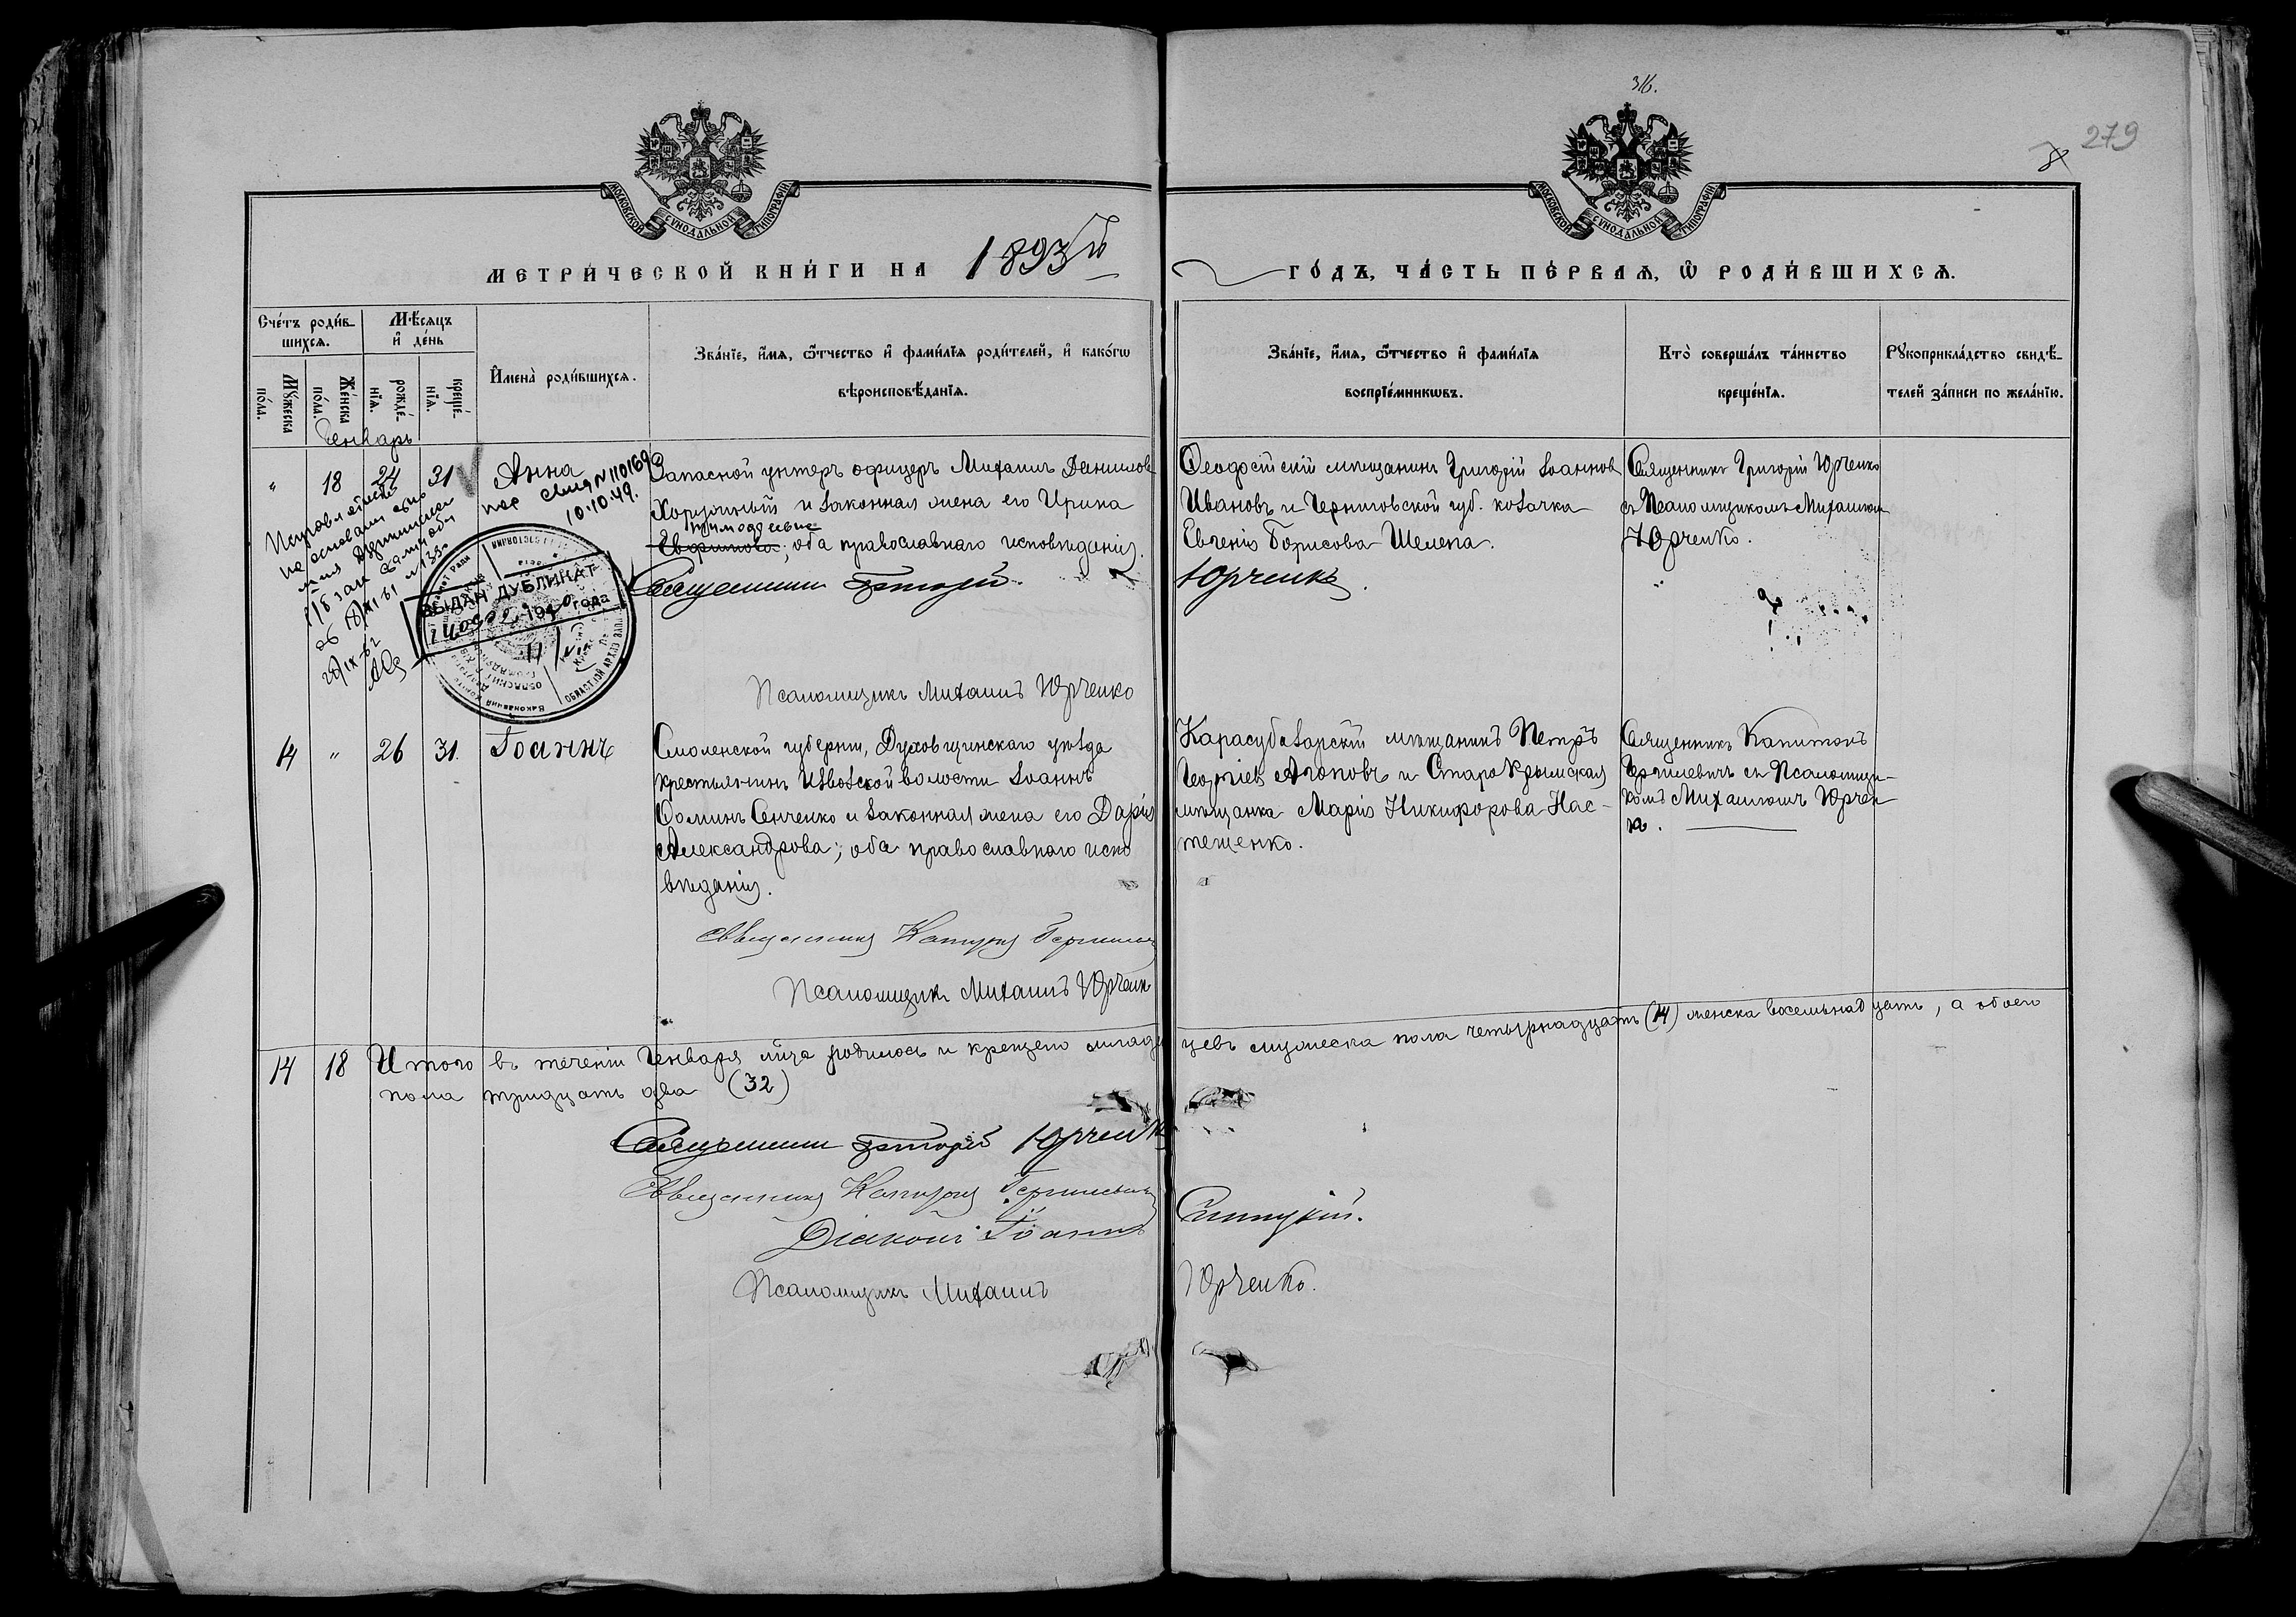 316.
279
МОСКОВСКОЙ СУНОДАЛЬНОЙ ТИПОГРАФІИ
МОСКОВСКОЙ СУНОДАЛЬНОЙ ТИПОГРАФІИ
МЕТРИ́ЧЕСКОЙ КНИ́ГИ НА 1893й ГО́ДЪ, ЧА́СТЬ ПЕ́РВАѦ, Ѡ РОДИ́ВШИХСѦ.
Счётъ роди́вшихся.
Мѣ́сяцъ и де́нь
Мꙋ́жеска по́ла.
Же́нска по́ла.
рожде́нїя.
креще́нїя.
Имена̀ роди́вшихся.
Зва́нїе, и́мя, ѻ҆́тчество и҆ фами́лїя роди́телей, и҆ како́гѡ
вѣроисповѣ́данїя.
Зва́нїе, и́мя, ѻ҆́тчество и҆ фами́лїя
воспрїе́мникѡвъ.
Кто̀ соверша́лъ та́инство
креще́нїя.
Рꙋкоприкла́дство свидѣ́-
телей за́писи по жела́нїю.
Генварь
" 18 24 31 Анна
Запасной унтеръ офицеръ Михаилъ Данилова
Хорунжый и законная жена его Ирина
Евфимова; оба православнаго исповѣданія.
Священникъ Григорій Юрченко
Псаломщикъ Михаилъ Юрченко
Ѳеодосійскій мѣщанинъ Григорій Іоаннов
Ивановъ и Черниговской губ. козачка
Евгенія Борисова Шелепа.
Священникъ Григорій Юрченко
съ Псаломщикомъ Михаиломъ
Юрченко.
№ 110169
10.10.49.
Исправл
на основании
ВЫДАН ДУБЛИКАТ
года
14 " 26 31. Іоаннъ
Смоленской губерніи, Духовщинскаго уѣзда
крестьянинъ Изво́ской волости Іоаннъ
Ѳоминъ Сенченко и законная жена его Дарія
Александрова; оба православнаго испо
вѣданія.
Священникъ Капитонъ
Псаломщикъ Михаилъ Юрченк
Карасубазарскій мѣщанинъ Петръ
Георгіев Агоповъ и Старокрымская
мѣщанка Марія Никифорова Нас-
тещенко.
Священникъ Капитонъ
съ Псаломщи-
комъ Михаиломъ Юрчен
ко.
14 18 Итого въ теченіи Генваря м҃ца родилось и крещено младенцевъ мужеска пола четырнадцать (14) женска восемьнадцать, а обоего
пола тридцать два (32)
Священникъ Григорій Юрченк
Священникъ Капитонъ
Діаконъ Іоаннъ
Псаломщикъ Михаилъ Юрченко.